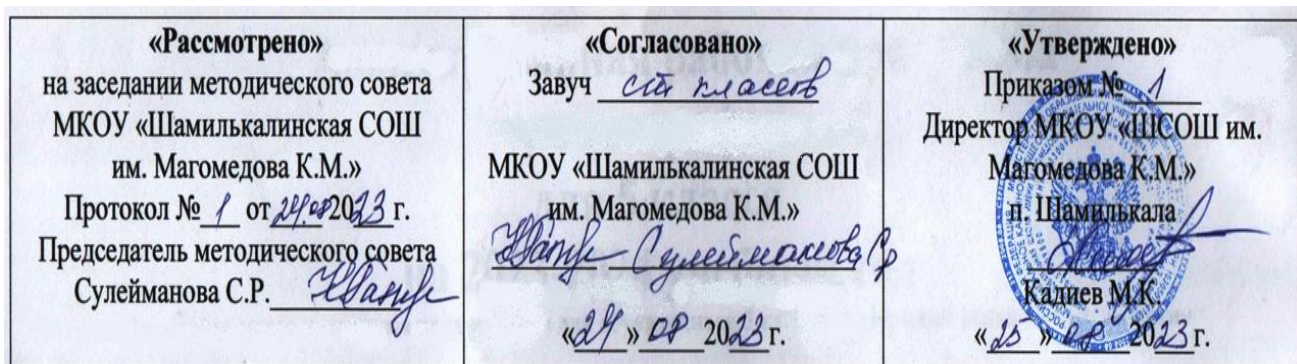 «Рассмотрено»
на заседании методического совета
МКОУ «Шамилькалинская СОШ
им. Магомедова К.М.»
Протокол № 1 от 24.08 2023 г.
Председатель методического совета
Сулейманова С.Р.
«Согласовано»
Завуч ст. классов
МКОУ «Шамилькалинская СОШ
им. Магомедова К.М.»
Сулейманова С.Р
«24» 08 2023 г.
«Утверждено»
Приказом № 1
Директор МКОУ «ШСОШ им.
Магомедова К.М.»
п. Шамилькала
Кадиев М.К.
«25» 08 2023 г.